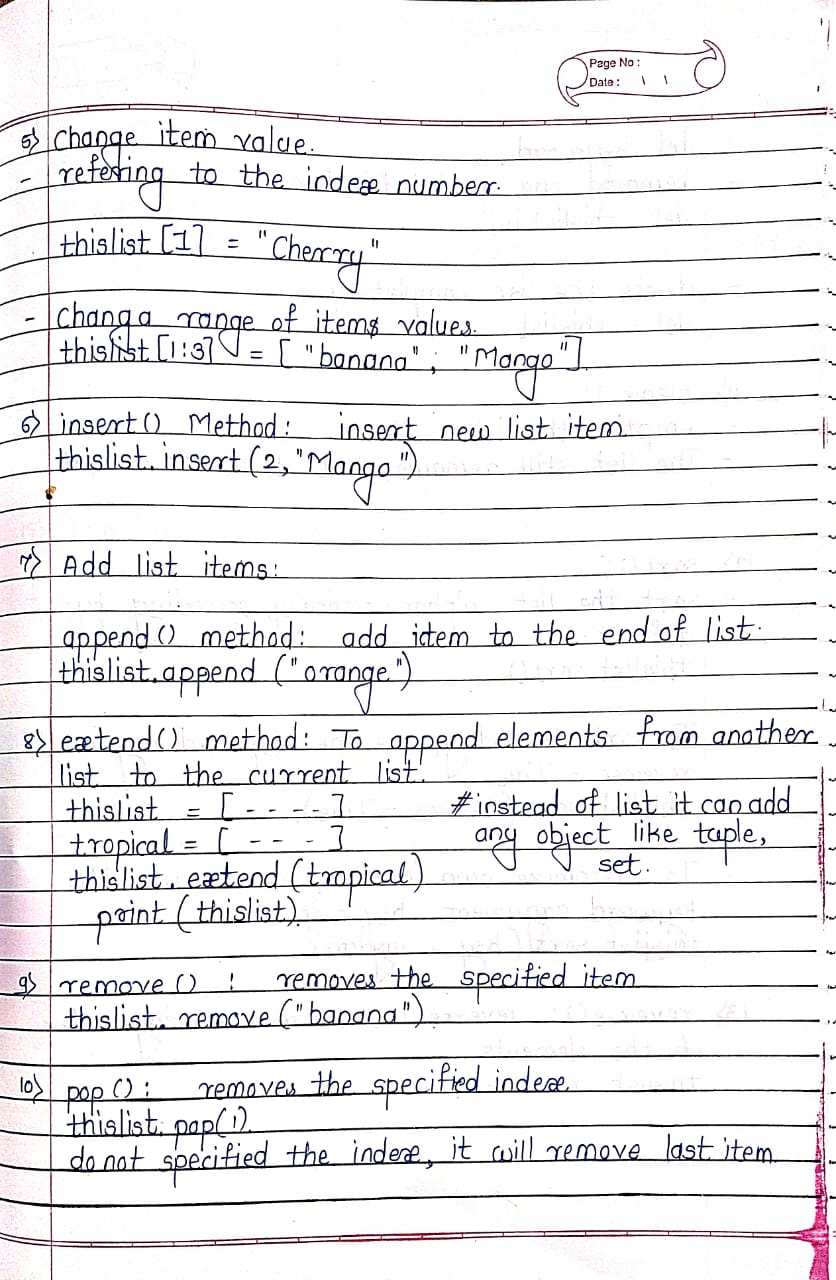 Page No :
Date : \ \
5) Change item value.
- refering to the index number.
thislist [1] = "Cherry"
- Chang a range of items values.
thislist [1:3] = [ "banana" ; "Mango" ]
6) insert () Method : insert new list item
thislist. insert (2, "Mango")
7) Add list items :
append () method : add idem to the end of list.
thislist. append ("orange")
8) extend () method : To append elements from another
list to the current list.
thislist = [ - - - - ] # instead of list it can add
tropical = [ - - - ] any object like tuple,
thislist . extend (tropical) set.
print (thislist)
9) remove () : removes the specified item
thislist. remove ("banana")
10) pop () : removes the specified index.
thislist. pop(1)
do not specified the index, it will remove last item